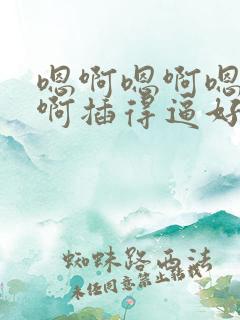 嗯啊嗯啊嗯
啊插得逼好
蜘蛛路西法
未经同意禁止转载